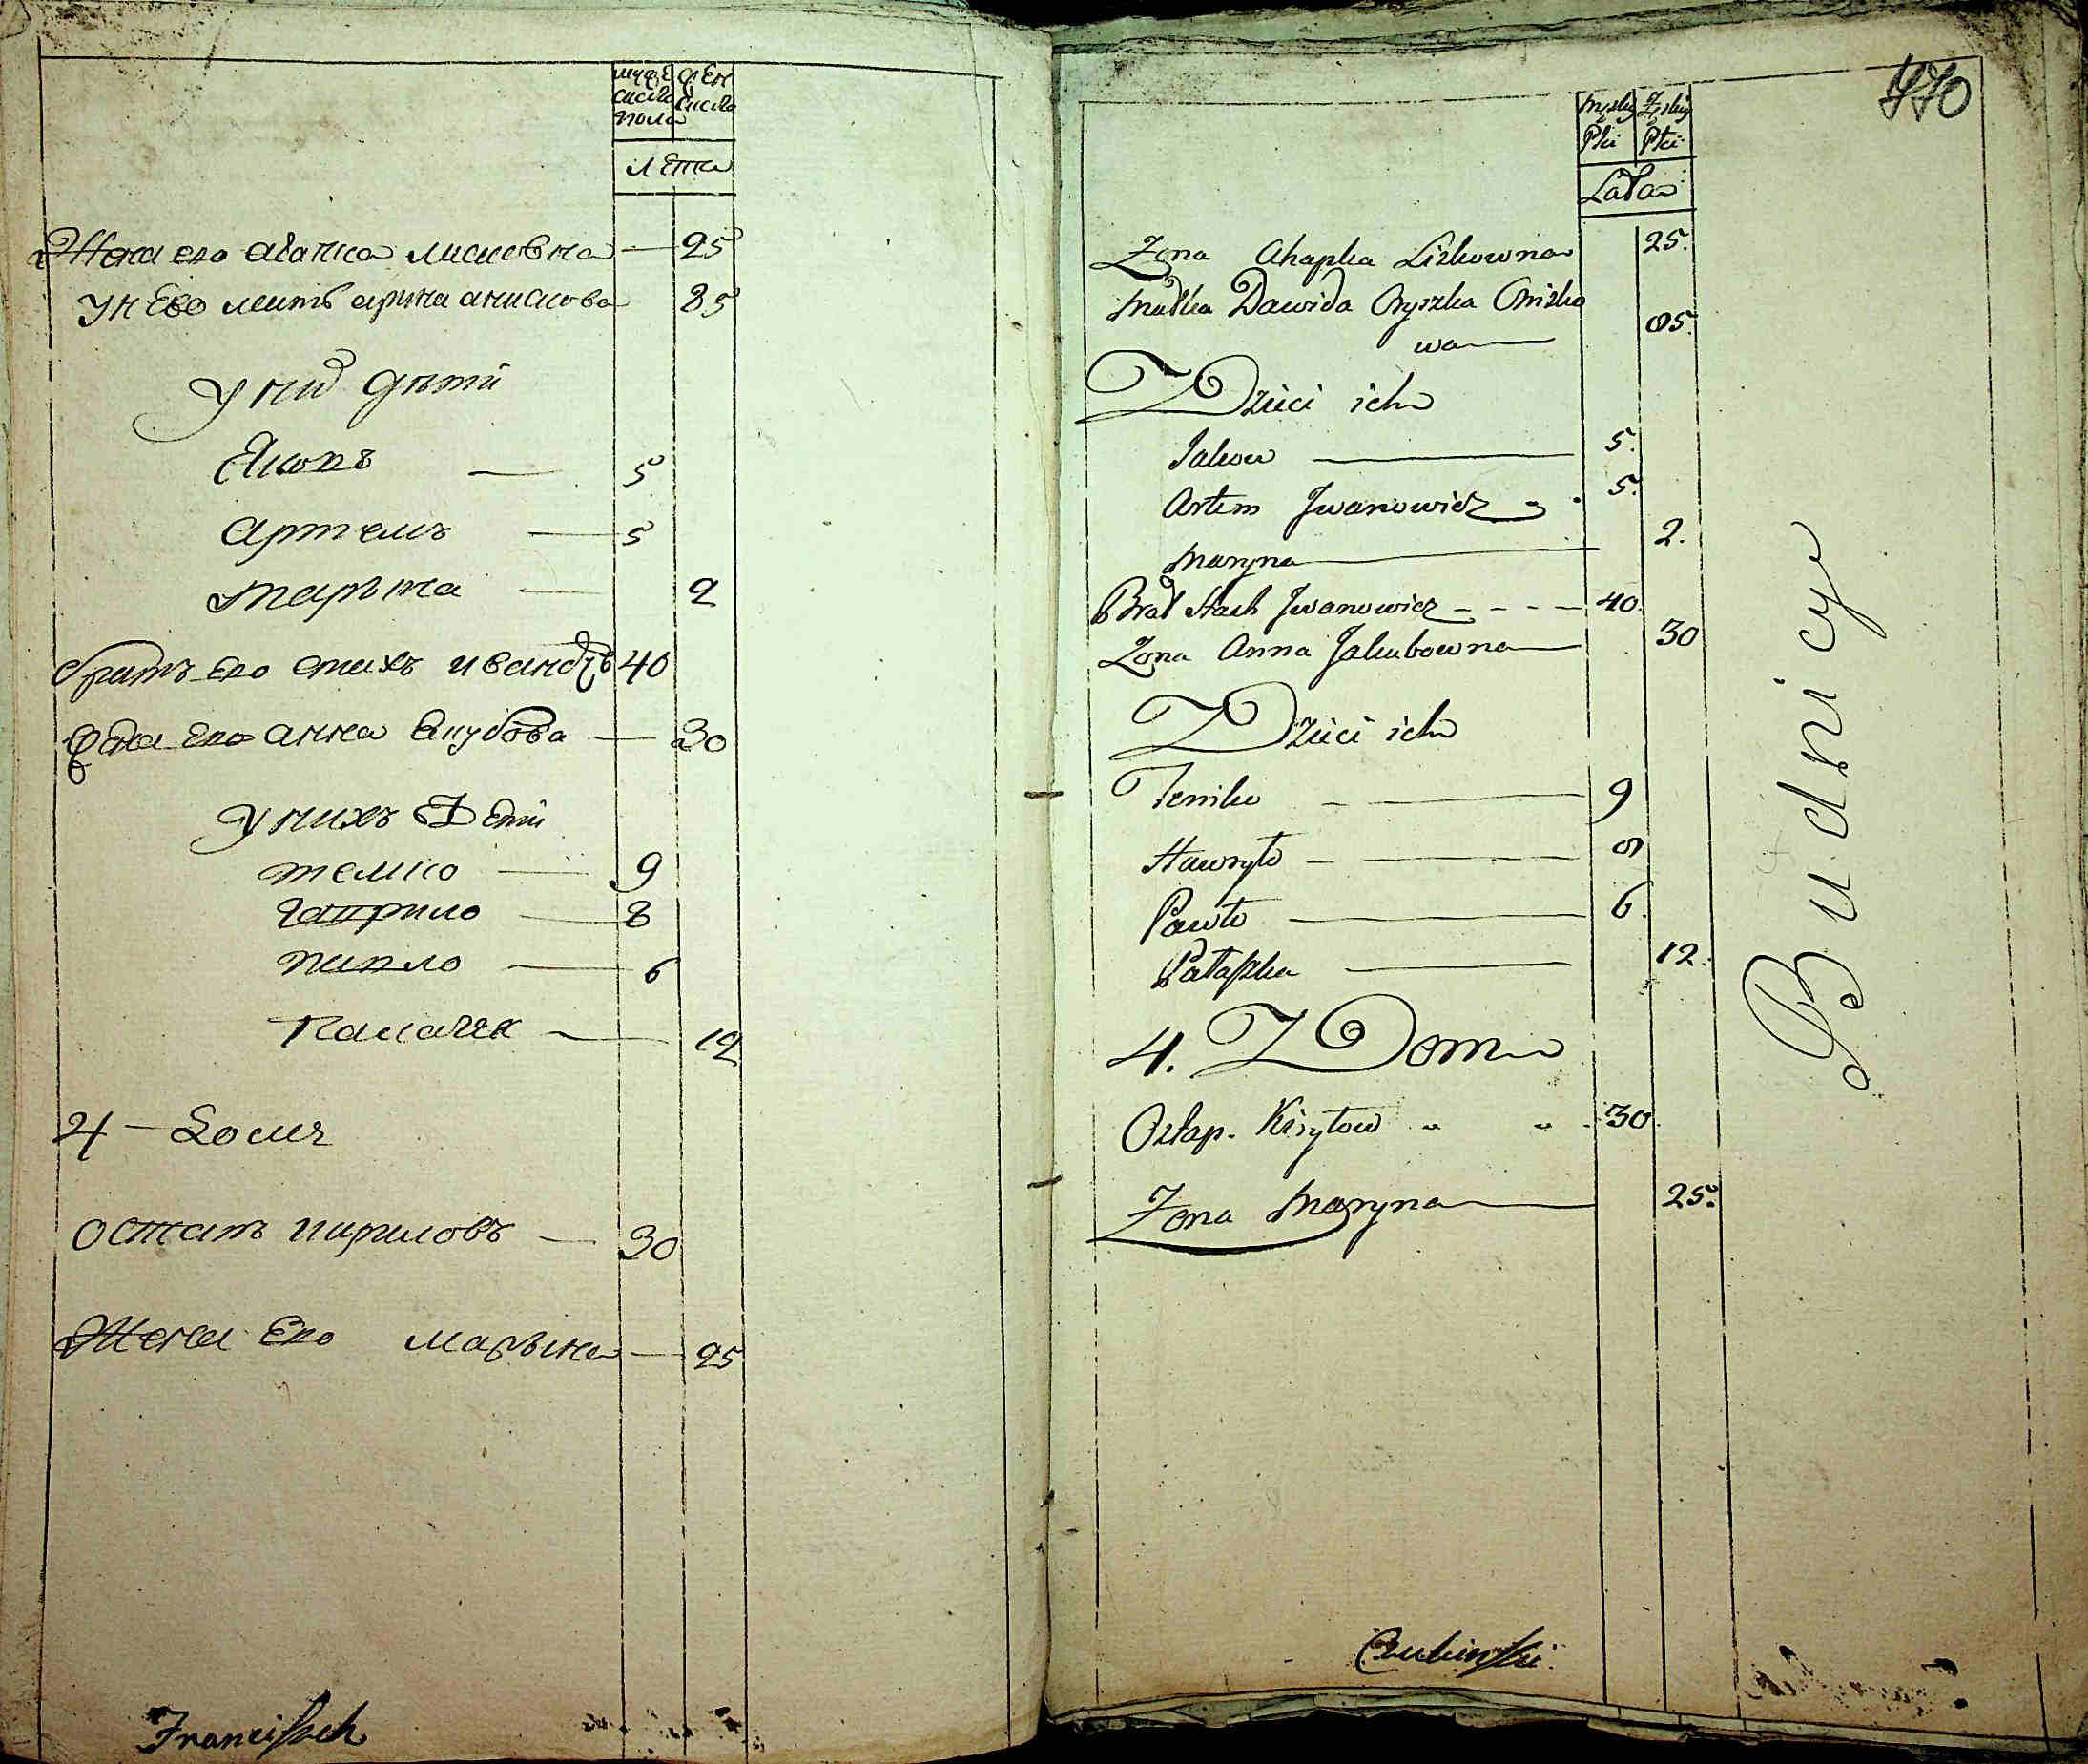 муже жен
сиска сиска
пола
лета
Жена его агапка лисковна — 25
У него мать арина анискова 85
У них дѣти
Якопъ — 5
артемъ — 5
марына — 2
братъ его стахъ ивановъ 40
Жена его анна Якубова — 30
У нихъ Дети
темко — 9
гаприло — 8
павло — 6
Палашка — 12
4 — Домъ
остапъ кириловъ — 30
Жена Его марына — 25
Francissek
440
Męzkij Zęskij
Płci Płci
Lata
Zona Ahapka Liskowna 25.
Matka Dawida Oryszka Onisko
wa — 85.
Dzieci ich
Jakow — 5.
Artem Jwanowicz 5.
Maryna — 2.
Brat Stach Jwanowicz - - - - 40.
Zona Anna Jakubowna — 30
Dzieci ich
Temko — 9
Hawryło — 8
Pawło — 6.
Pałaszka — 12.
4. Dom
Ostap Kiryłow 30.
Zona Maryna — 25.
Budnicy